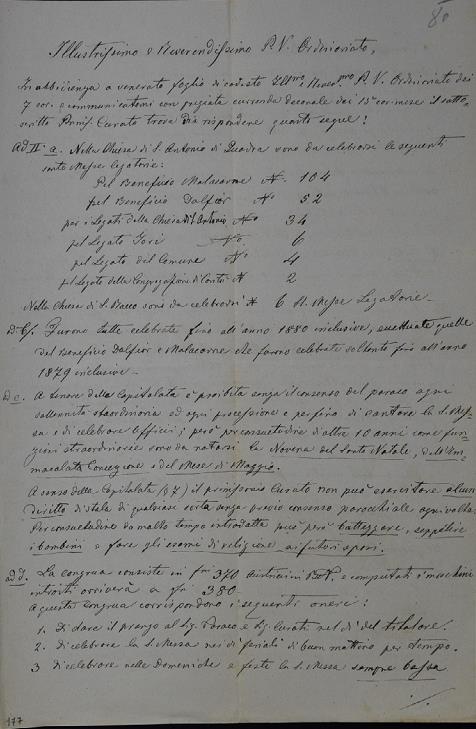 80
Illustrissimo e Reverendissimo P. V. Ordinariato,
In obbedienza a venerato foglio di codesto Illmo e Revmo P. V. Ordinariato dei
7 cor. e communicatomi con pregiata currenda decanale dei 15 cor. mese il sotto-
scritto Prim. Curato trova di rispondere quanto segue:
Ad II a. Nella Chiesa di S. Antonio di Quadra sono da celebrarsi le seguenti
sante Messe legatarie:
Pel Beneficio Malacarne No 104
pel Beneficio Dalfior No 52
per i Legati della Chiesa di S. Antonio No 34
pel Legato Fori No 6
pel Legato del Comune No 4
pel Legato della Congregazione di Carità No 2
Nella Chiesa di S. Rocco sono da celebrarsi No 6 S. Messe Legatarie.
b/. Furono tutte celebrate fino all'anno 1880 inclusive, eccettuate quelle
del Beneficio Dalfior e Malacarne che furono celebrate soltanto fino all'anno
1879 inclusive.
Ad c. A tenore della Capitolata è proibita senza il consenso del paroco ogni
solennità straordinaria ed ogni processione e perfino di cantare la S. Mes-
sa e di celebrare Officii; però per consuetudine d'oltre 10 anni come fun-
zioni straordinarie sono da notarsi la Novena del Santo Natale, dell'Im-
macolata Concezione e del Mese di Maggio.
A senso della Capitolata (§ 7) il primissario Curato non può esercitare alcun
diritto di stola di qualsiasi sorta senza previo consenso parochiale ogni volta.
Per consuetudine da molto tempo introdotta può però battezzare, seppellire
i bambini e fare gli esami di religione ai futuri sposi.
ad d. La congrua consiste in fni 370 e computati i meschini
introiti arriverà a fni 380.
A questa congrua corrispondono i seguenti oneri:
1. Di dare il pranzo al Sig. Paroco e Sig. Curati nel dì del titolare.
2. Di celebrare la S. Messa nei dì feriali di buon mattino per tempo.
3 Di celebrare nelle Domeniche e feste la S. Messa sempre bassa
177